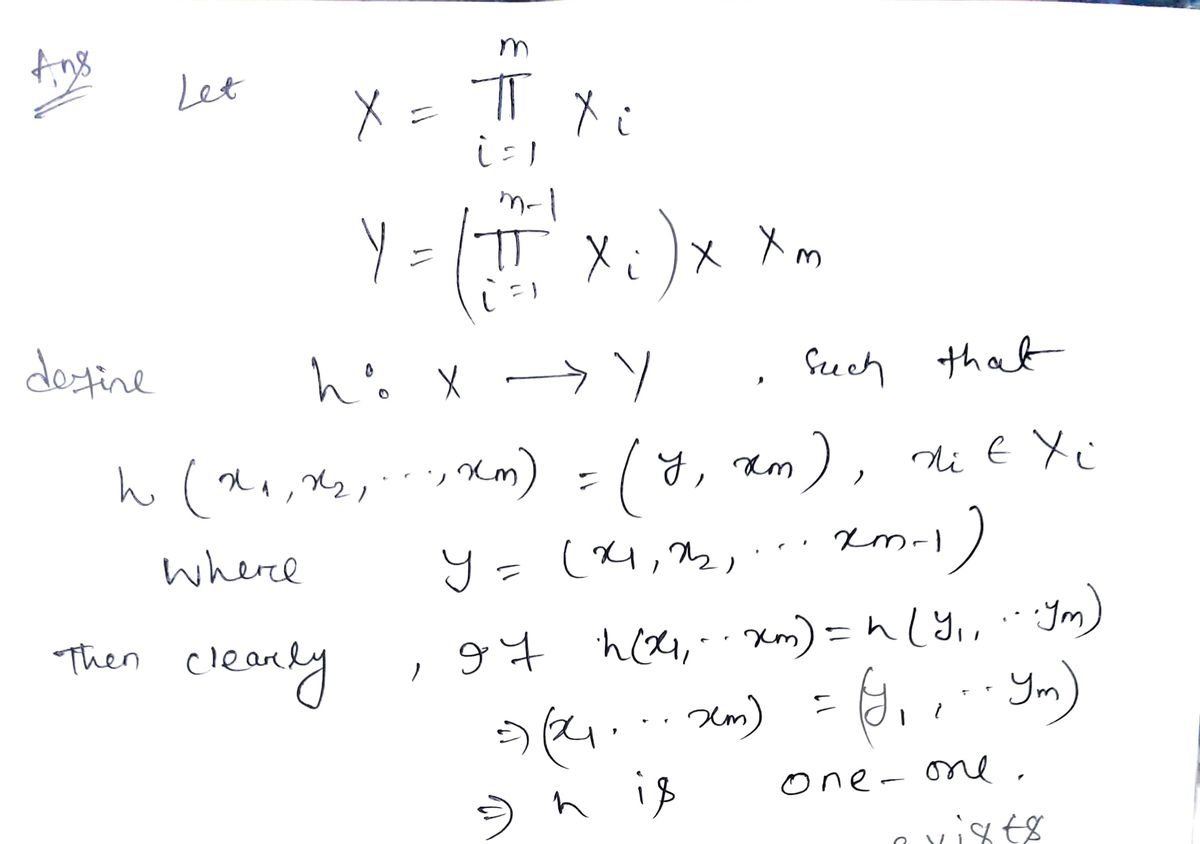 Ans Let X = ∏_{i=1}^{m} X_i
Y = (∏_{i=1}^{m-1} X_i) × X_m
define h : X → Y , such that
h (x_1, x_2, ..., x_m) = (y, x_m), x_i ∈ X_i
where y = (x_1, x_2, ... x_{m-1})
Then clearly , If h(x_1, .. x_m) = h(y_1, .. y_m)
⇒ (x_1, ... x_m) = (y_1, .. y_m)
⇒ h is one-one.
exists